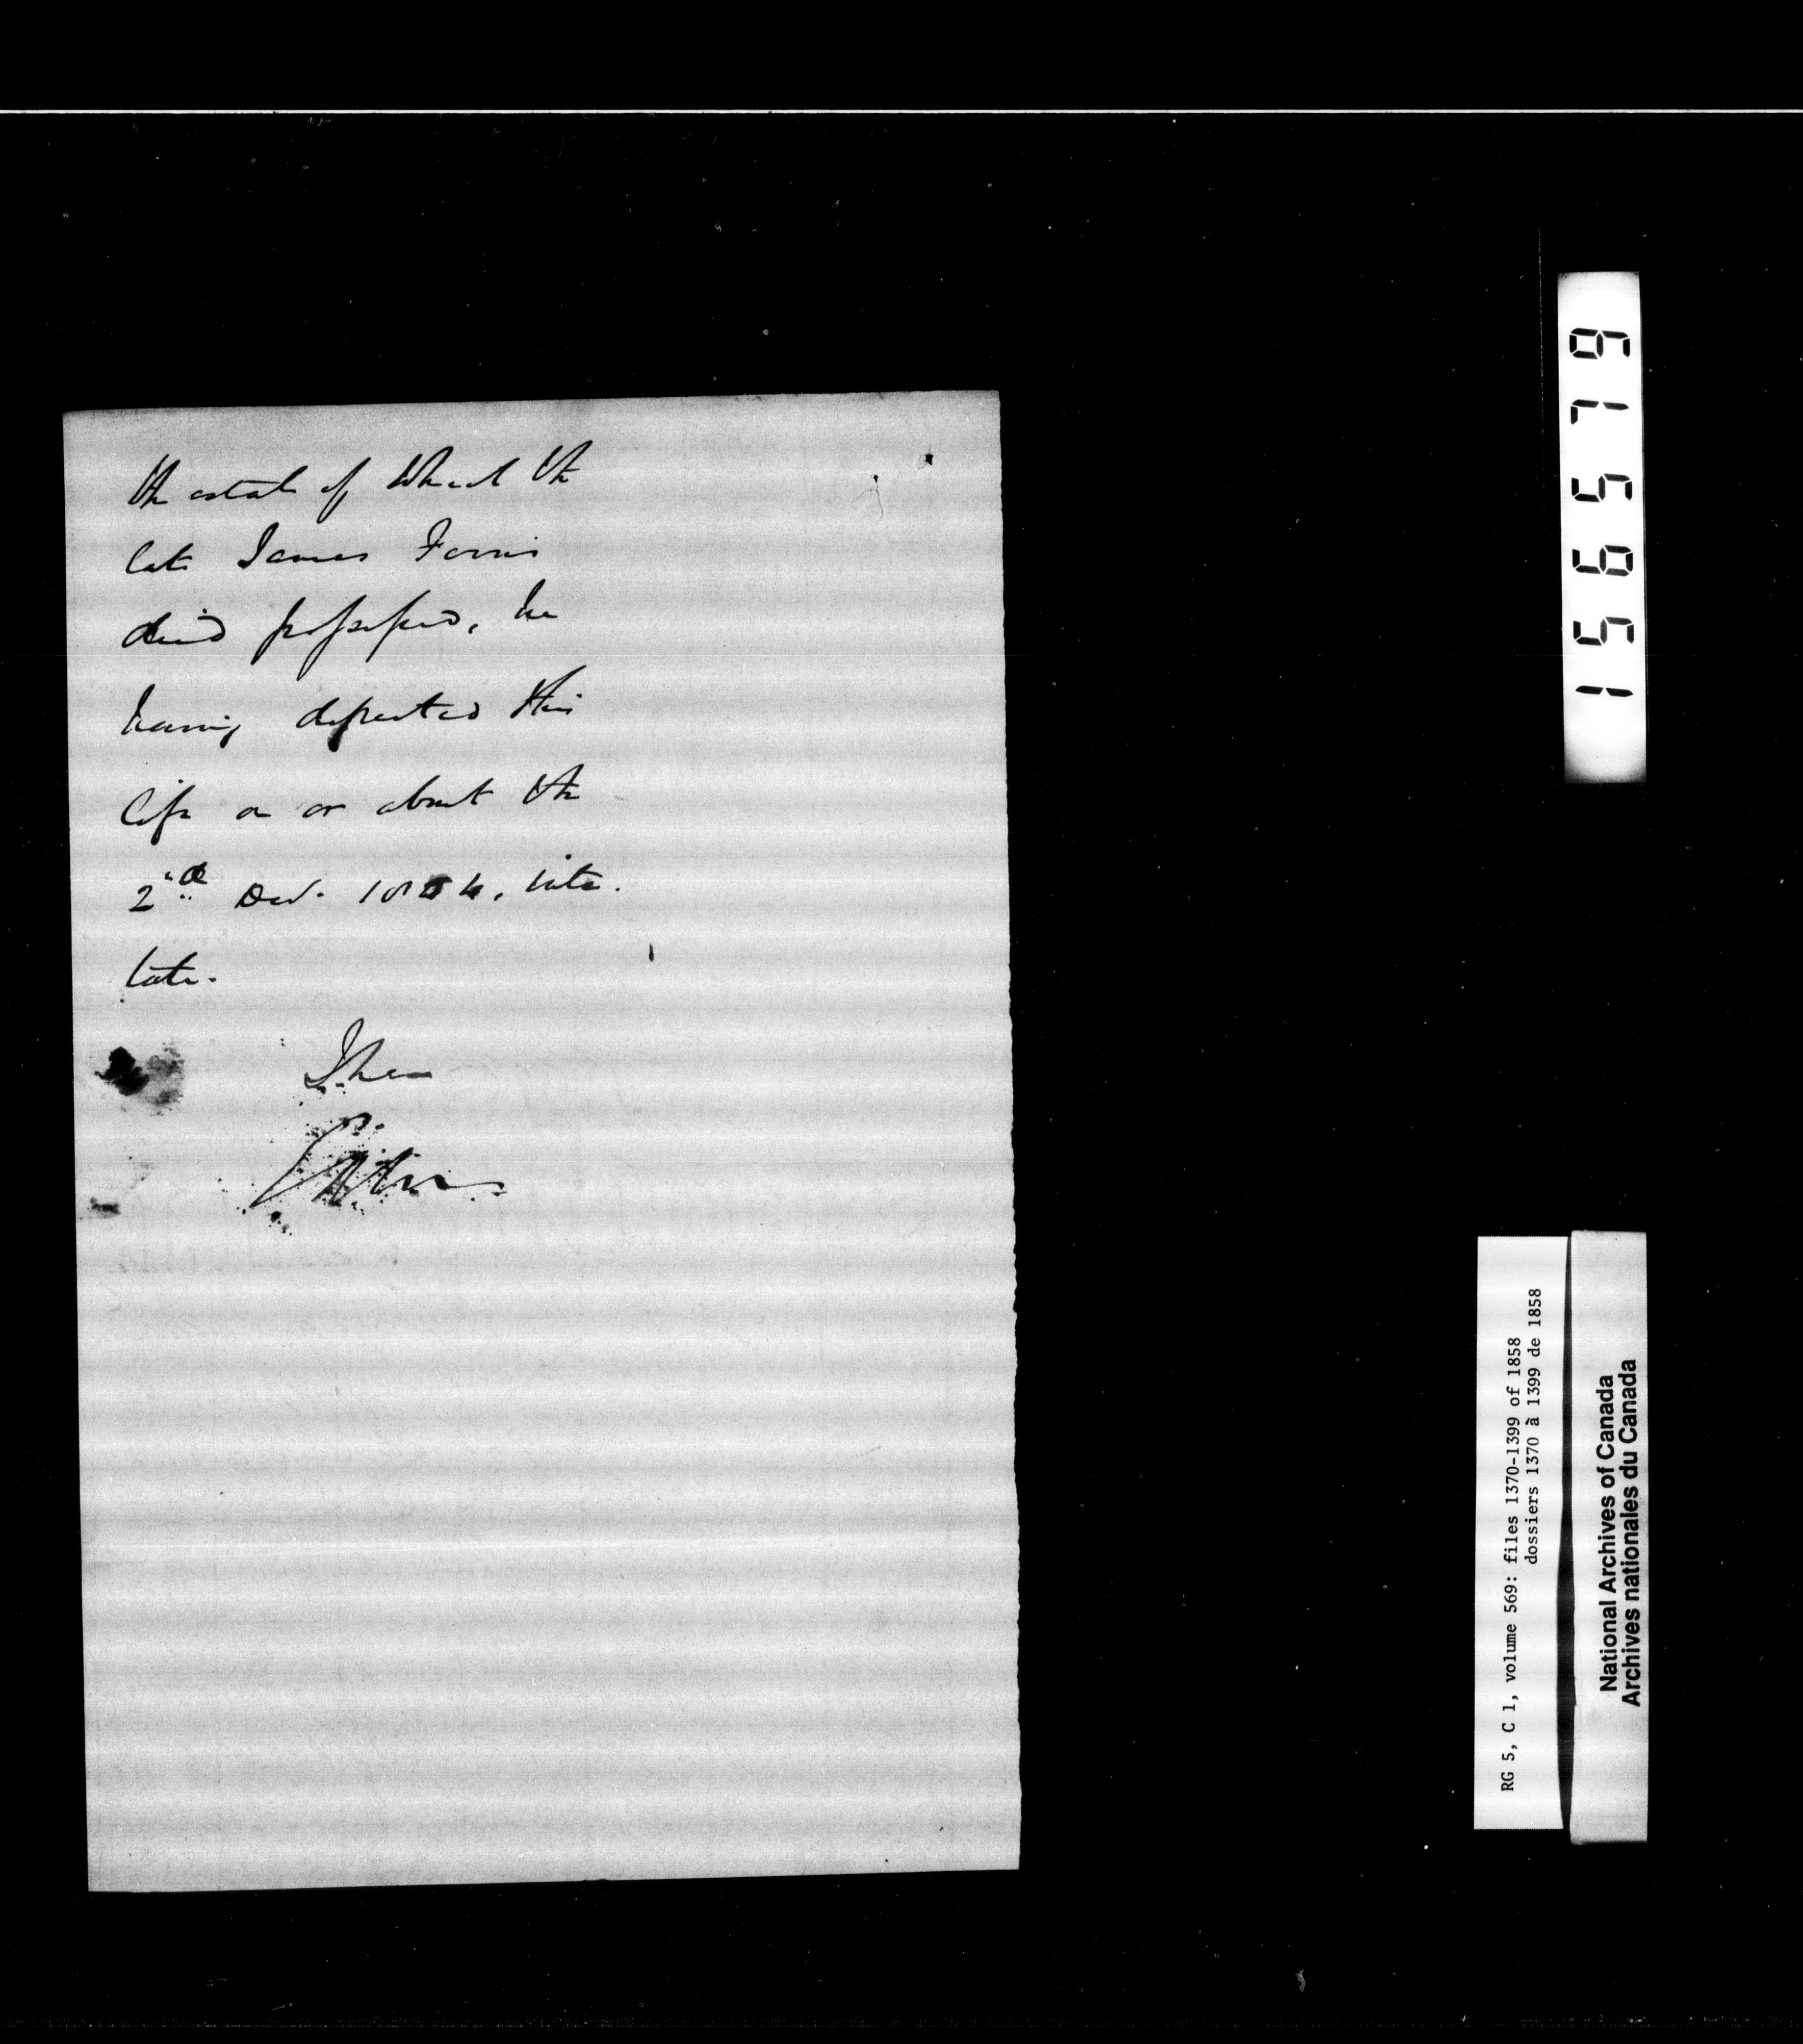 the estate of which the
late James Ferris
died possessed, he
having departed this
life on or about the
2nd Decr. 1854, inte.
tate.
156579
RG 5, C 1, volume 569: files 1370-1399 of 1858
dossiers 1370 à 1399 de 1858
National Archives of Canada
Archives nationales du Canada